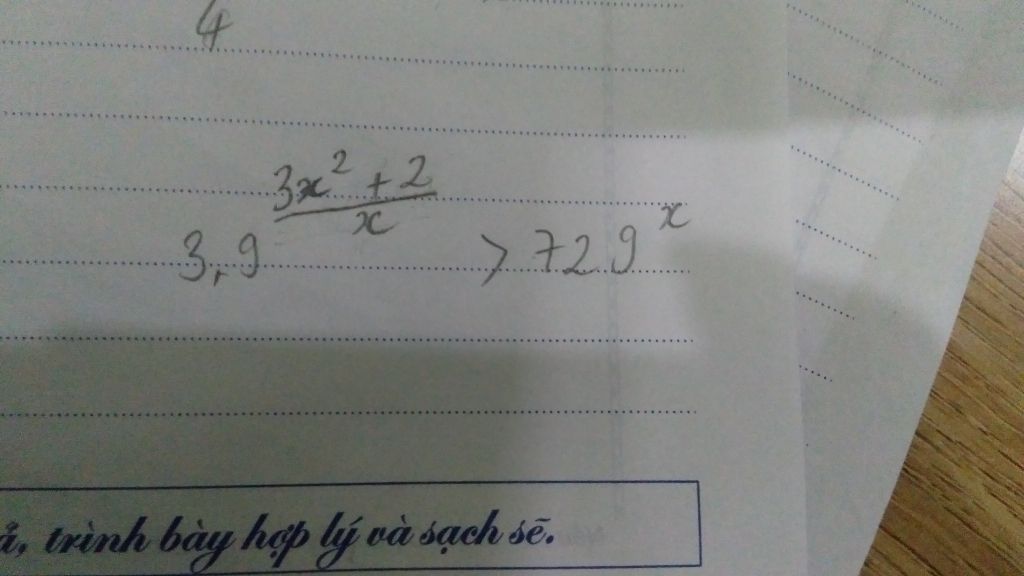 4
3,9^{\frac{3x^2+2}{x}} > 729^x
trình bày hợp lý và sạch sẽ.